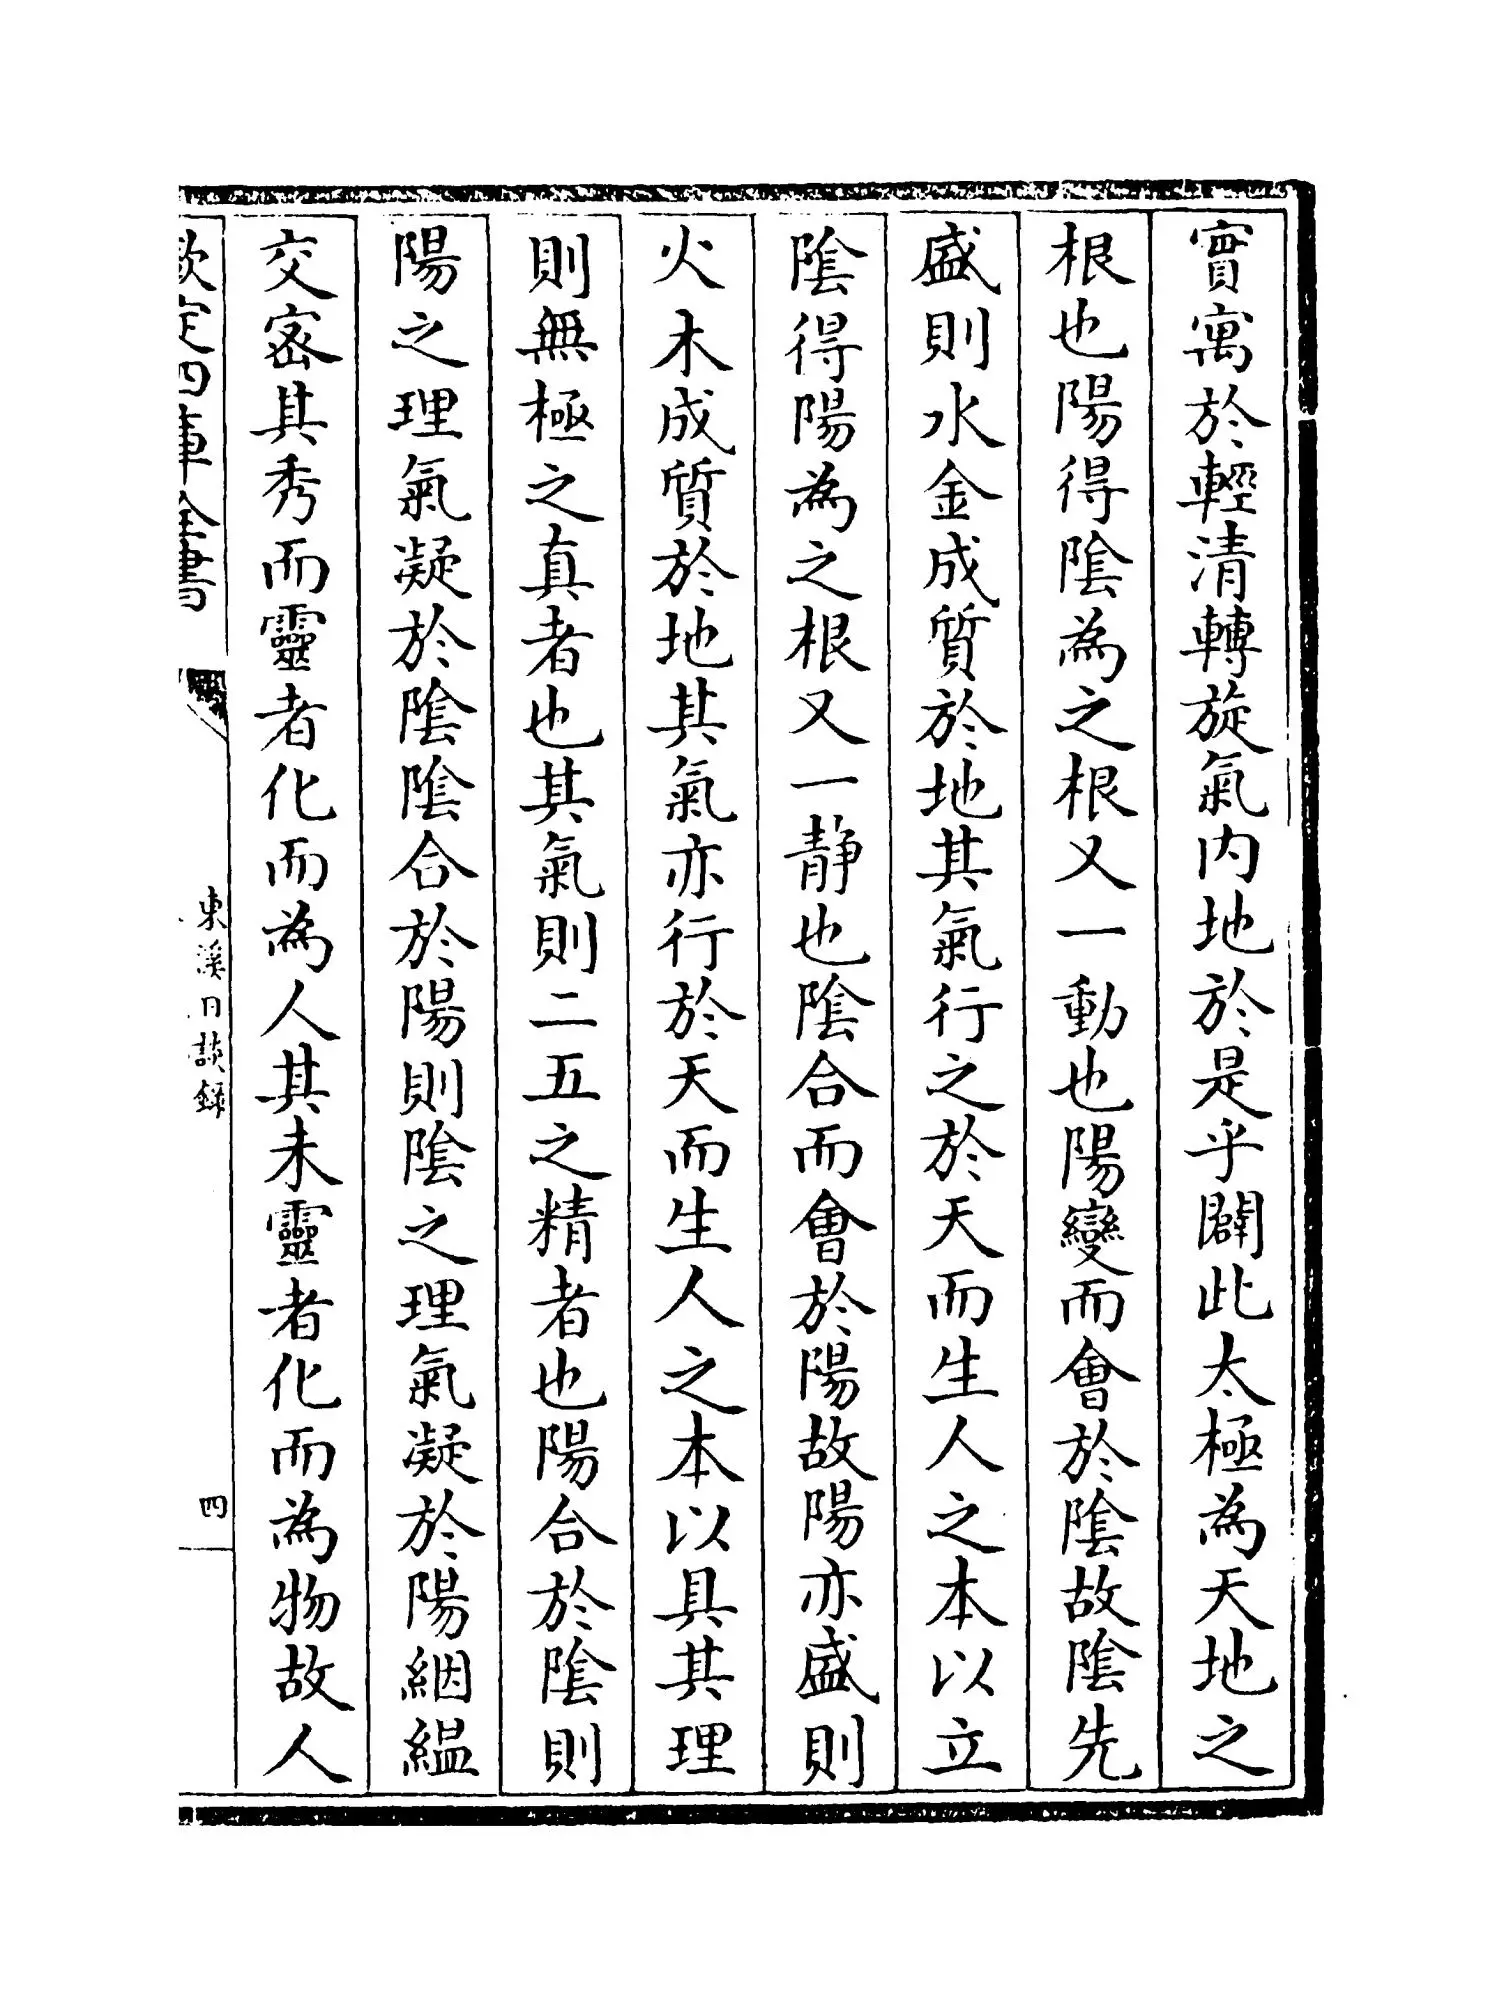 實寓於輕清轉旋氣内地於是乎闢此太極為天地之
根也陽得陰為之根又一動也陽變而會於陰故陰先
盛則水金成質於地其氣行之於天而生人之本以立
陰得陽為之根又一静也陰合而會於陽故陽亦盛則
火木成質於地其氣亦行於天而生人之本以具其理
則無極之真者也其氣則二五之精者也陽合於陰則
陽之理氣凝於陰陰合於陽則陰之理氣凝於陽絪緼
交宻其秀而靈者化而為人其未靈者化而為物故人
欽定四庫全書
東溪日談録
四